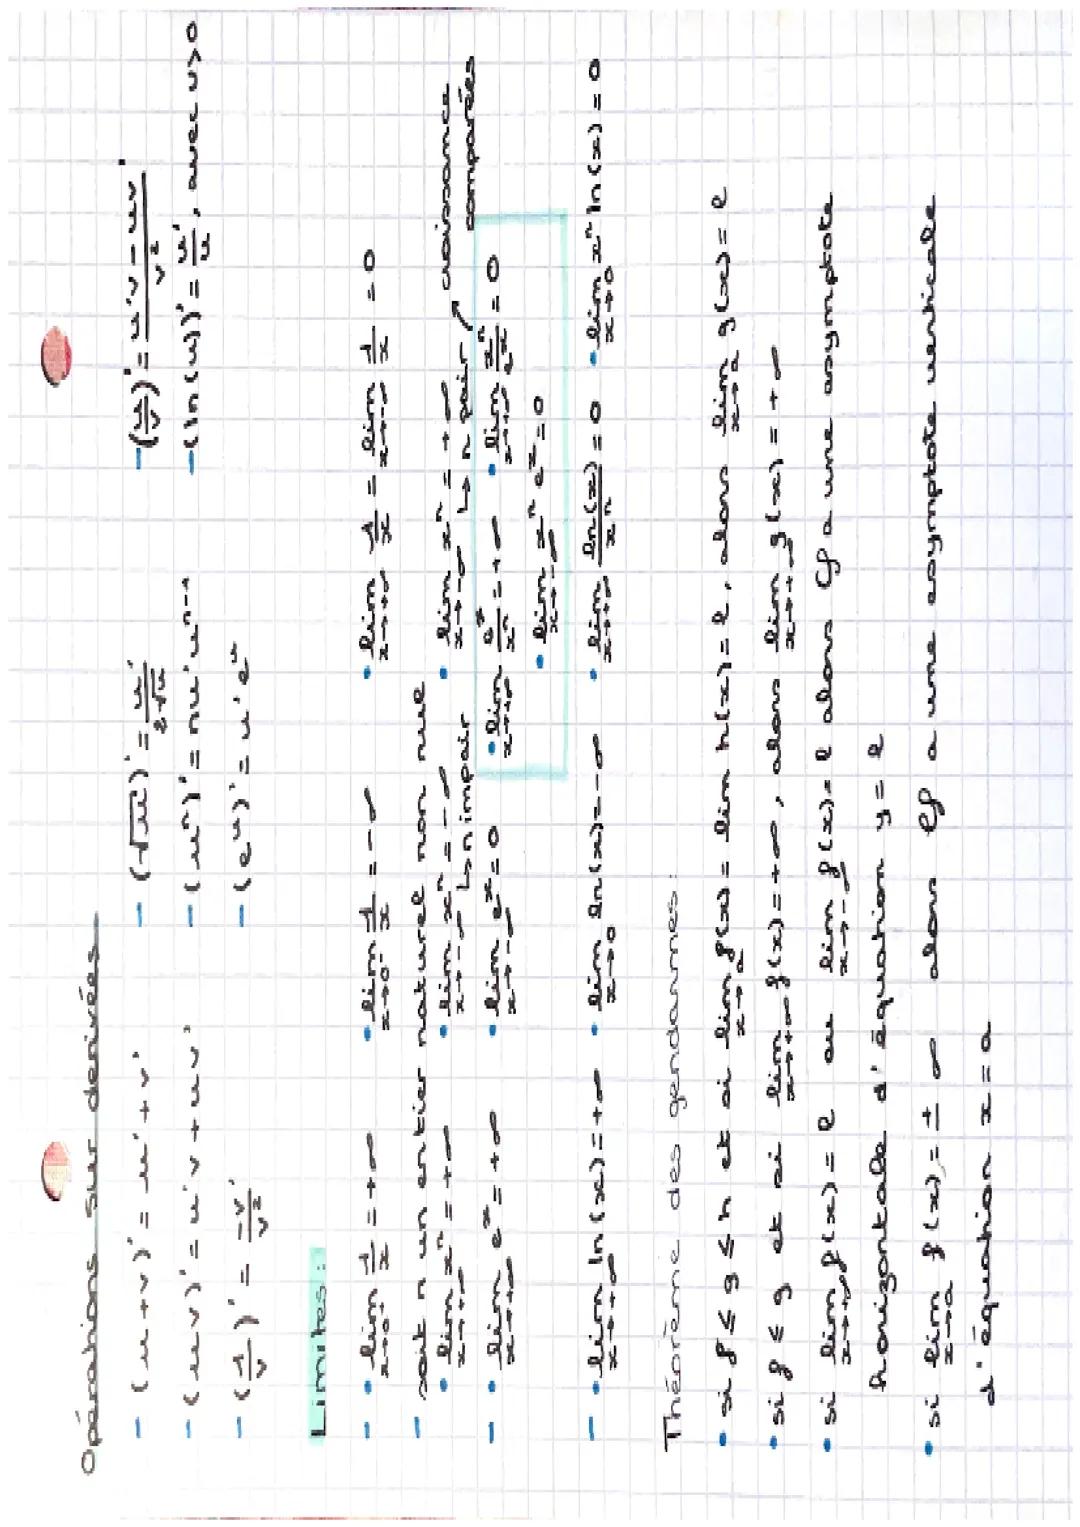 Opérations sur dérivées
- (u+v)' = u' + v' - (√u)' = u'/2√u - (u/v)' = u'v - uv'/v²
- (uv)' = u'v + uv' - (uⁿ)' = nu'uⁿ⁻¹ - (ln(u))' = u'/u, avec u>0
- (1/v)' = -v'/v² - (eᵘ)' = u'eᵘ
Limites :
- • lim x→0⁺ 1/x = +∞ • lim x→0⁻ 1/x = -∞ • lim x→+∞ 1/x = lim x→-∞ 1/x = 0
- soit n un entier naturel non nul
• lim x→+∞ xⁿ = +∞ • lim x→-∞ xⁿ = -∞ • lim x→-∞ xⁿ = +∞ croissance
↳ n impair ↳ n pair comparées
- • lim x→+∞ eˣ = +∞ • lim x→-∞ eˣ = 0 • lim x→+∞ eˣ/xⁿ = +∞ • lim x→+∞ xⁿ/eˣ = 0
• lim x→-∞ xⁿ eˣ = 0
- • lim x→+∞ ln(x) = +∞ • lim x→0 ln(x) = -∞ • lim x→+∞ ln(x)/xⁿ = 0 • lim x→0 xⁿ ln(x) = 0
Théorème des gendarmes :
• si f ≤ g ≤ h et si lim x→a f(x) = lim h(x) = l, alors lim x→a g(x) = l
• si f ≤ g et si lim x→+∞ f(x) = +∞, alors lim x→+∞ g(x) = +∞
• si lim x→+∞ f(x) = l ou lim x→-∞ f(x) = l alors Cf a une asymptote
horizontale d'équation y = l
• si lim x→a f(x) = ± ∞ alors Cf a une asymptote verticale
d'équation x = a